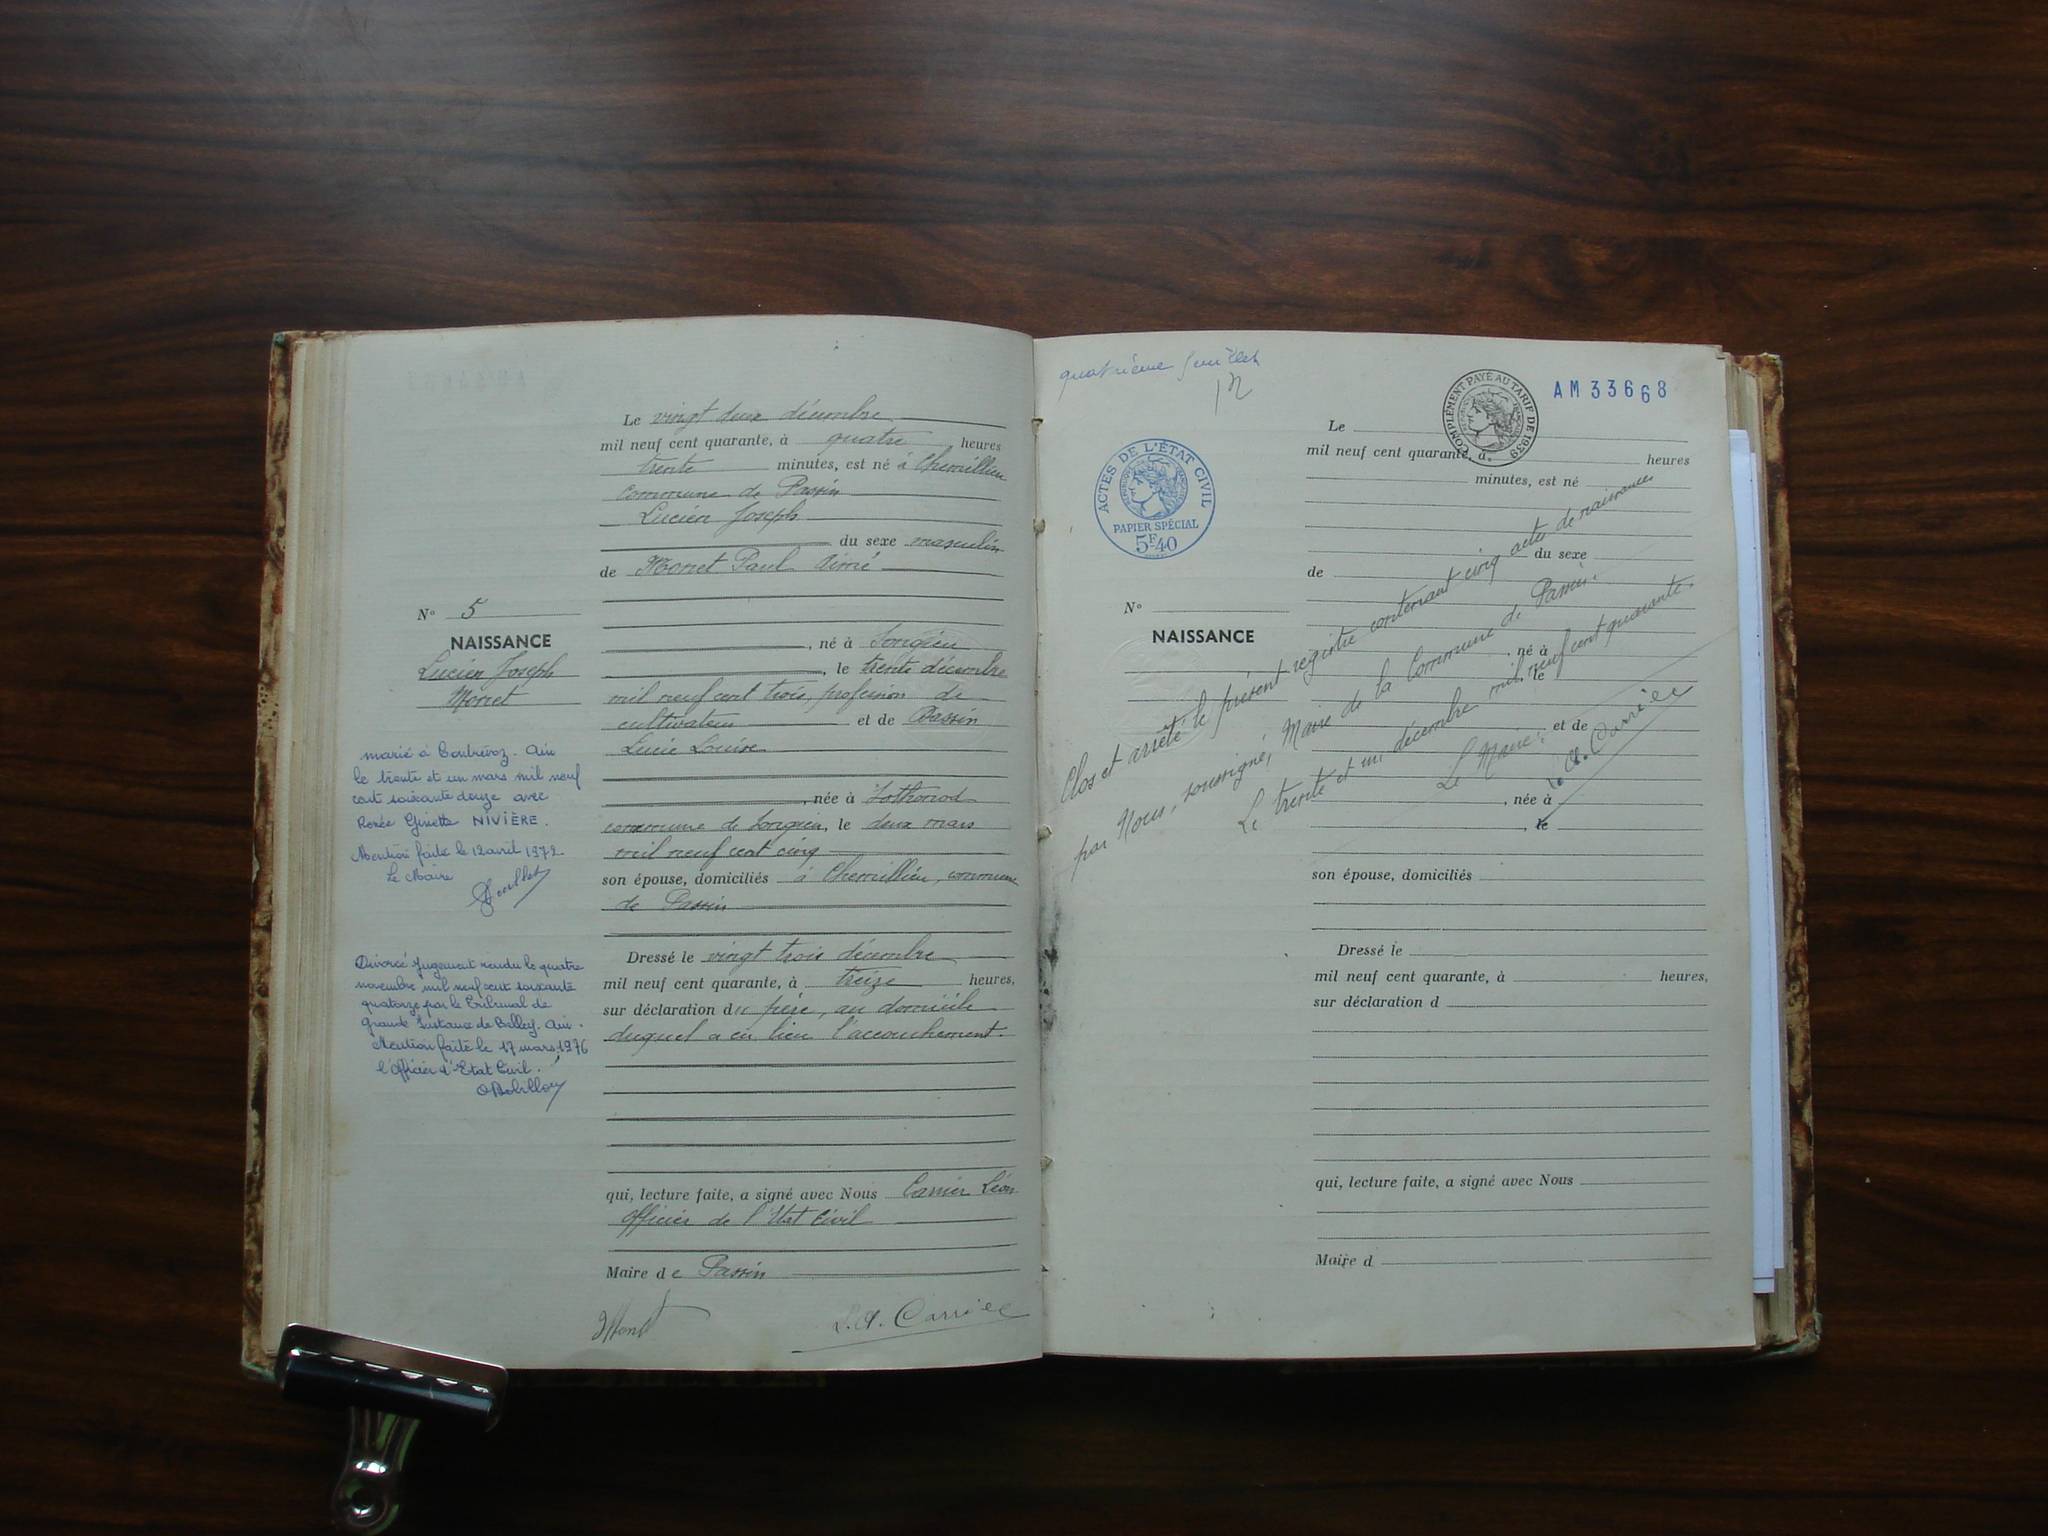 Le vingt deux décembre
mil neuf cent quarante, à quatre heures
trente minutes, est né à Chemillieu
commune de Passin
Lucien Joseph
du sexe masculin
de Monet Paul Aimé
N° 5
NAISSANCE
Lucien Joseph
Monet
, né à Songieu
, le trente décembre
mil neuf cent trois, profession de
cultivateur et de Passin
Lucie Louise
, née à Sothonod
commune de Songieu, le deux mars
mil neuf cent cinq
son épouse, domiciliés à Chemillieu, commune
de Passin
marié à Contrevoz. Ain
le trente et un mars mil neuf
cent soixante douze avec
Renée Ginette NIVIÈRE.
Mention faite le 12 avril 1972
Le Maire
Divorcé Jugement rendu le quatre
novembre mil neuf cent soixante
quatorze par le Tribunal de
Grande Instance de Belley. Ain.
Mention faite le 17 mars 1976
l'Officier d'Etat Civil.
Dressé le vingt trois décembre
mil neuf cent quarante, à treize heures,
sur déclaration du père, au domicile
duquel a eu lieu l'accouchement.
qui, lecture faite, a signé avec Nous Carrier Léon
Officier de l'Etat Civil
Maire de Passin
L. A. Carrier
quatrième feuillet
COMPLÉMENT PAYÉ AU TARIF DE 1939
AM33668
ACTES DE L'ÉTAT CIVIL
PAPIER SPÉCIAL
5F40
Le
mil neuf cent quarante, à heures
minutes, est né
du sexe
de
N°
NAISSANCE
, né à
, le
et de
, née à
, le
son épouse, domiciliés
Clos et arrêté le présent registre contenant cinq actes de naissances
par Nous, soussigné, Maire de la Commune de Passin.
Le trente et un décembre mil neuf cent quarante.
Le Maire:
L. A. Carrier
Dressé le
mil neuf cent quarante, à heures,
sur déclaration d
qui, lecture faite, a signé avec Nous
Maire d